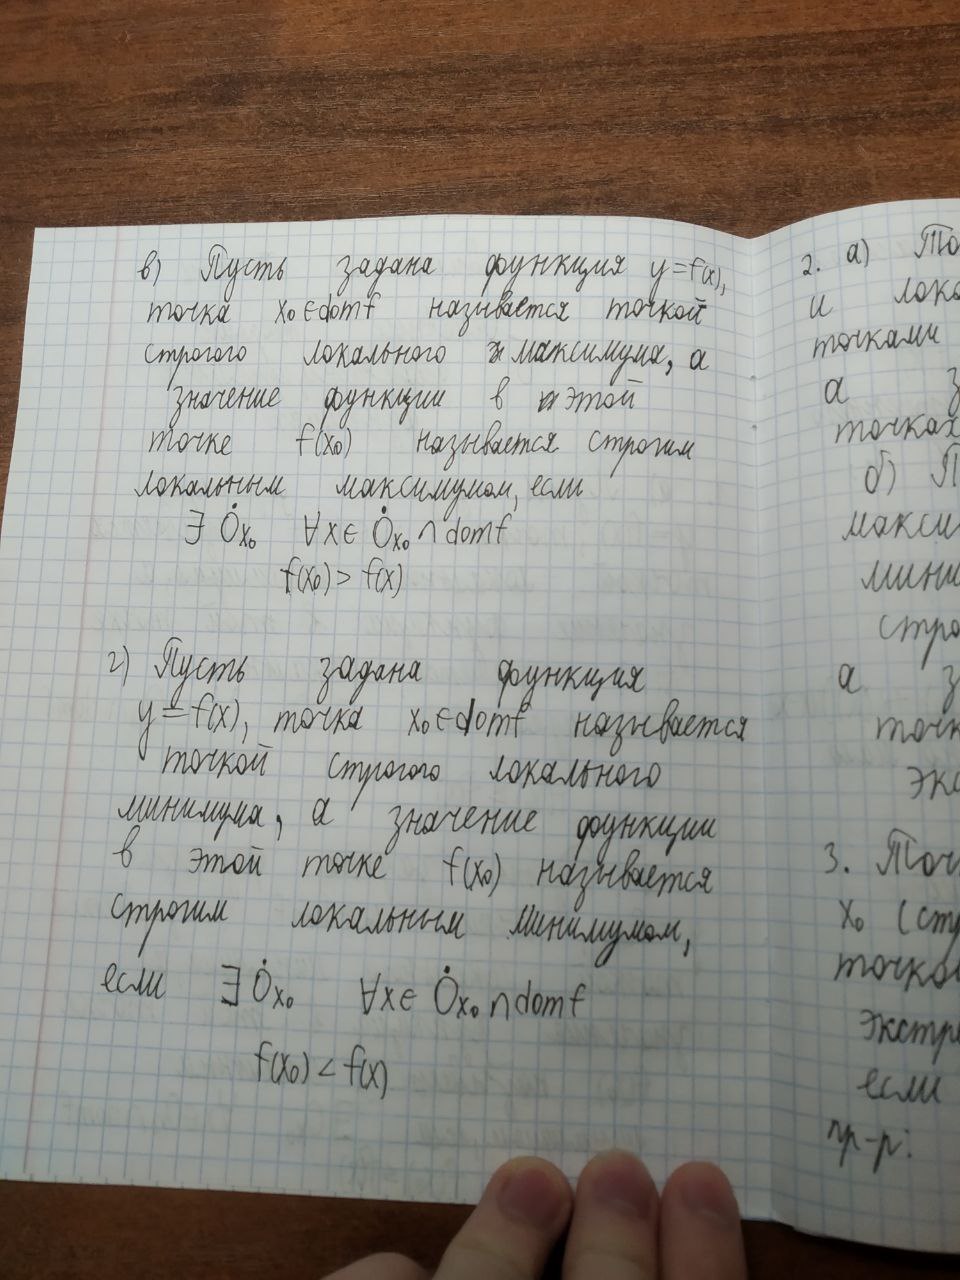 в) Пусть задана функция y=f(x),
точка x₀∈domf называется точкой
строгого локального максимума, а
значение функции в этой
точке f(x₀) называется строгим
локальным максимумом, если
∃ Ȯx₀ ∀x∈ Ȯx₀ ∩ domf
f(x₀) > f(x)
г) Пусть задана функция
y=f(x), точка x₀∈domf называется
точкой строгого локального
минимума, а значение функции
в этой точке f(x₀) называется
строгим локальным минимумом,
если ∃ Ȯx₀ ∀x∈ Ȯx₀ ∩ domf
f(x₀) < f(x)
2. а) То
и лока
точками
а з
точках
б) П
макси
мини
стро
а з
точк
экс
3. Точ
x₀ (стр
точкой
экстре
если
пр-р: